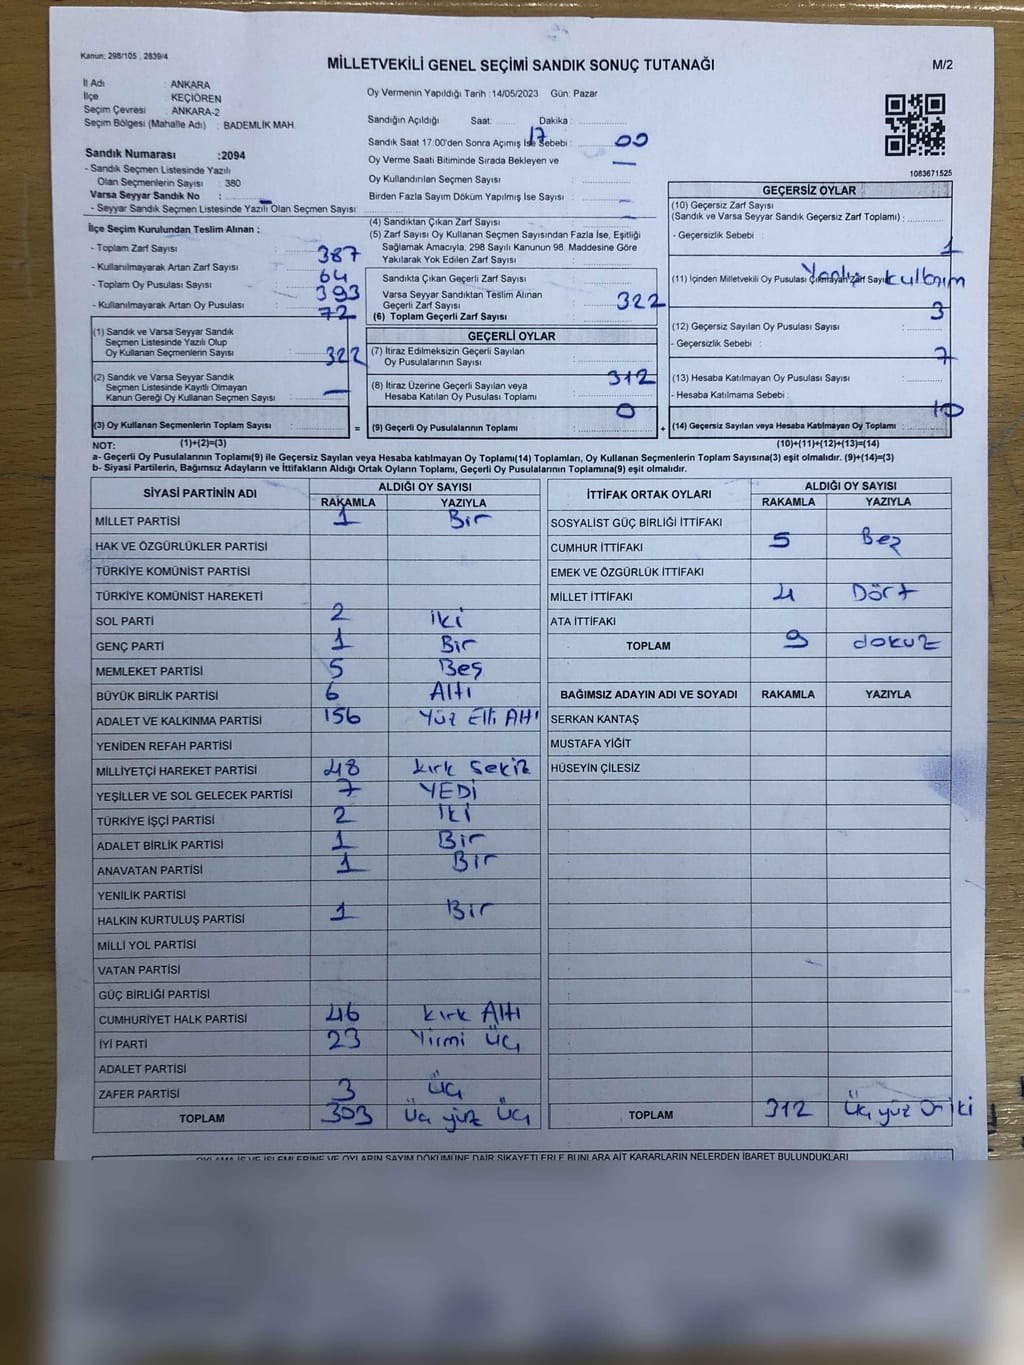 Kanun; 298/105 , 2839/4
MİLLETVEKİLİ GENEL SEÇİMİ SANDIK SONUÇ TUTANAĞI
M/2
İl Adı : ANKARA
İlçe : KEÇİÖREN
Seçim Çevresi : ANKARA-2
Seçim Bölgesi (Mahalle Adı) : BADEMLİK MAH.
Sandık Numarası :2094
- Sandık Seçmen Listesinde Yazılı
Olan Seçmenlerin Sayısı : 380
Varsa Seyyar Sandık No :
- Seyyar Sandık Seçmen Listesinde Yazılı Olan Seçmen Sayısı: —
İlçe Seçim Kurulundan Teslim Alınan ;
- Toplam Zarf Sayısı : 387
- Kullanılmayarak Artan Zarf Sayısı : 64
- Toplam Oy Pusulası Sayısı : 393
- Kullanılmayarak Artan Oy Pusulası : 72
(1) Sandık ve Varsa Seyyar Sandık
Seçmen Listesinde Yazılı Olup
Oy Kullanan Seçmenlerin Sayısı : 322
(2) Sandık ve Varsa Seyyar Sandık
Seçmen Listesinde Kayıtlı Olmayan
Kanun Gereği Oy Kullanan Seçmen Sayısı : —
(3) Oy Kullanan Seçmenlerin Toplam Sayısı :
Oy Vermenin Yapıldığı Tarih :14/05/2023 Gün: Pazar
Sandığın Açıldığı Saat: 17 Dakika : 00
Sandık Saat 17.00'den Sonra Açımış İse Sebebi : —
Oy Verme Saati Bitiminde Sırada Bekleyen ve
Oy Kullandırılan Seçmen Sayısı :
Birden Fazla Sayım Döküm Yapılmış İse Sayısı :
(4) Sandıktan Çıkan Zarf Sayısı :
(5) Zarf Sayısı Oy Kullanan Seçmen Sayısından Fazla İse, Eşitliği
Sağlamak Amacıyla, 298 Sayılı Kanunun 98. Maddesine Göre
Yakılarak Yok Edilen Zarf Sayısı :
Sandıkta Çıkan Geçerli Zarf Sayısı :
Varsa Seyyar Sandıktan Teslim Alınan
Geçerli Zarf Sayısı : 322
(6) Toplam Geçerli Zarf Sayısı :
GEÇERLİ OYLAR
(7) İtiraz Edilmeksizin Geçerli Sayılan
Oy Pusulalarının Sayısı : 312
(8) İtiraz Üzerine Geçerli Sayılan veya
Hesaba Katılan Oy Pusulası Toplamı : 0
= (9) Geçerli Oy Pusulalarının Toplamı :
1083671525
GEÇERSİZ OYLAR
(10) Geçersiz Zarf Sayısı
(Sandık ve Varsa Seyyar Sandık Geçersiz Zarf Toplamı) :
- Geçersizlik Sebebi : 1
(11) İçinden Milletvekili Oy Pusulası Çıkmayan Zarf Sayısı
3
(12) Geçersiz Sayılan Oy Pusulası Sayısı :
- Geçersizlik Sebebi : 7
(13) Hesaba Katılmayan Oy Pusulası Sayısı :
- Hesaba Katılmama Sebebi : 10
+ (14) Geçersiz Sayılan veya Hesaba Katılmayan Oy Toplamı :
NOT: (1)+(2)=(3) (10)+(11)+(12)+(13)=(14)
a- Geçerli Oy Pusulalarının Toplamı(9) ile Geçersiz Sayılan veya Hesaba katılmayan Oy Toplamı(14) Toplamları, Oy Kullanan Seçmenlerin Toplam Sayısına(3) eşit olmalıdır. (9)+(14)=(3)
b- Siyasi Partilerin, Bağımsız Adayların ve İttifakların Aldığı Ortak Oyların Toplamı, Geçerli Oy Pusulalarının Toplamına(9) eşit olmalıdır.
SİYASİ PARTİNİN ADI ALDIĞI OY SAYISI
RAKAMLA YAZIYLA
MİLLET PARTİSİ 1 Bir
HAK VE ÖZGÜRLÜKLER PARTİSİ
TÜRKİYE KOMÜNİST PARTİSİ
TÜRKİYE KOMÜNİST HAREKETİ
SOL PARTİ 2 iki
GENÇ PARTİ 1 Bir
MEMLEKET PARTİSİ 5 Beş
BÜYÜK BİRLİK PARTİSİ 6 Altı
ADALET VE KALKINMA PARTİSİ 156 Yüz Elli Altı
YENİDEN REFAH PARTİSİ
MİLLİYETÇİ HAREKET PARTİSİ 48 kırk Sekiz
YEŞİLLER VE SOL GELECEK PARTİSİ 7 YEDİ
TÜRKİYE İŞÇİ PARTİSİ 2 İki
ADALET BİRLİK PARTİSİ 1 Bir
ANAVATAN PARTİSİ 1 Bir
YENİLİK PARTİSİ
HALKIN KURTULUŞ PARTİSİ 1 Bir
MİLLİ YOL PARTİSİ
VATAN PARTİSİ
GÜÇ BİRLİĞİ PARTİSİ
CUMHURİYET HALK PARTİSİ 46 kırk Altı
İYİ PARTİ 23 Yirmi Üç
ADALET PARTİSİ
ZAFER PARTİSİ 3 Üç
TOPLAM 303 Üç yüz Üç
İTTİFAK ORTAK OYLARI ALDIĞI OY SAYISI
RAKAMLA YAZIYLA
SOSYALİST GÜÇ BİRLİĞİ İTTİFAKI
CUMHUR İTTİFAKI 5 Beş
EMEK VE ÖZGÜRLÜK İTTİFAKI
MİLLET İTTİFAKI 4 Dört
ATA İTTİFAKI
TOPLAM 9 dokuz
BAĞIMSIZ ADAYIN ADI VE SOYADI RAKAMLA YAZIYLA
SERKAN KANTAŞ
MUSTAFA YİĞİT
HÜSEYİN ÇİLESİZ
TOPLAM 312 Üç yüz On iki
OYLAMA İŞ VE İŞLEMLERİNE VE OYLARIN SAYIM DÖKÜMÜNE DAİR ŞİKAYETLERLE BUNLARA AİT KARARLARIN NELERDEN İBARET BULUNDUKLARI